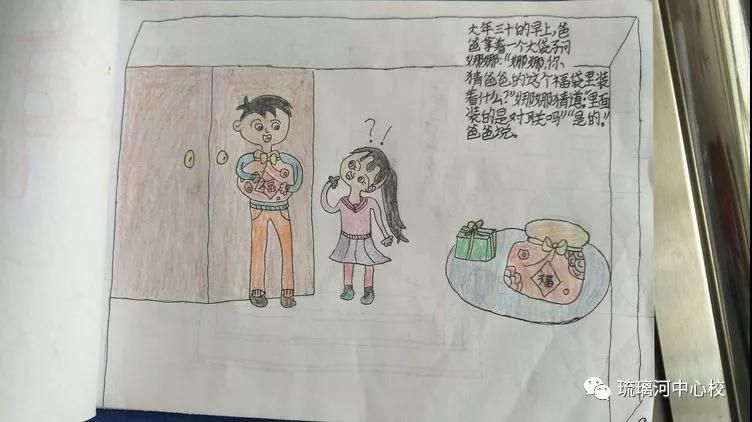 大年三十的早上,爸
爸拿着一个大袋子问
娜娜:“娜娜,你
猜爸爸的这个福袋里装
着什么?”娜娜猜道:“里面
装的是对联吗”“是的。”
爸爸说。
?!
福
福
琉璃河中心校